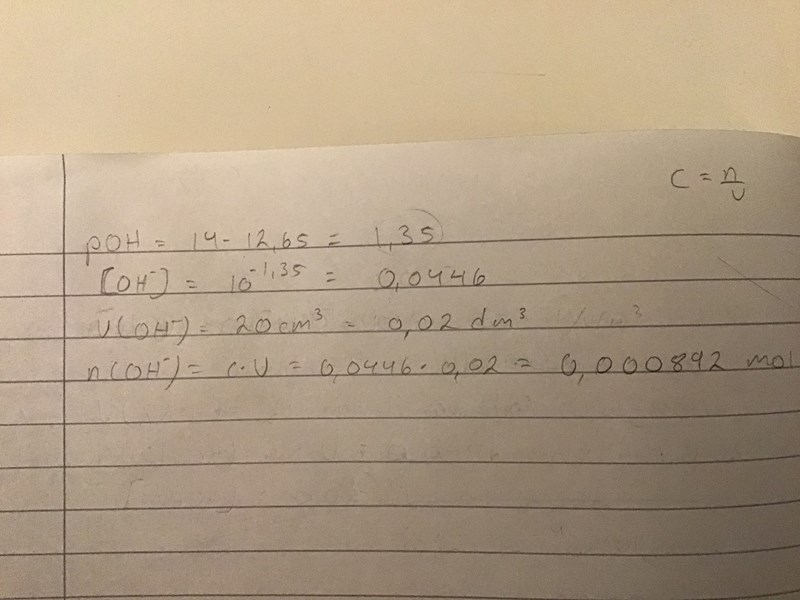 C = n/v
pOH = 14 - 12,65 = 1,35
[OH⁻] = 10⁻¹,³⁵ = 0,0446
V(OH⁻) = 20 cm³ = 0,02 dm³
n(OH⁻) = c·V = 0,0446 · 0,02 = 0,000892 mol